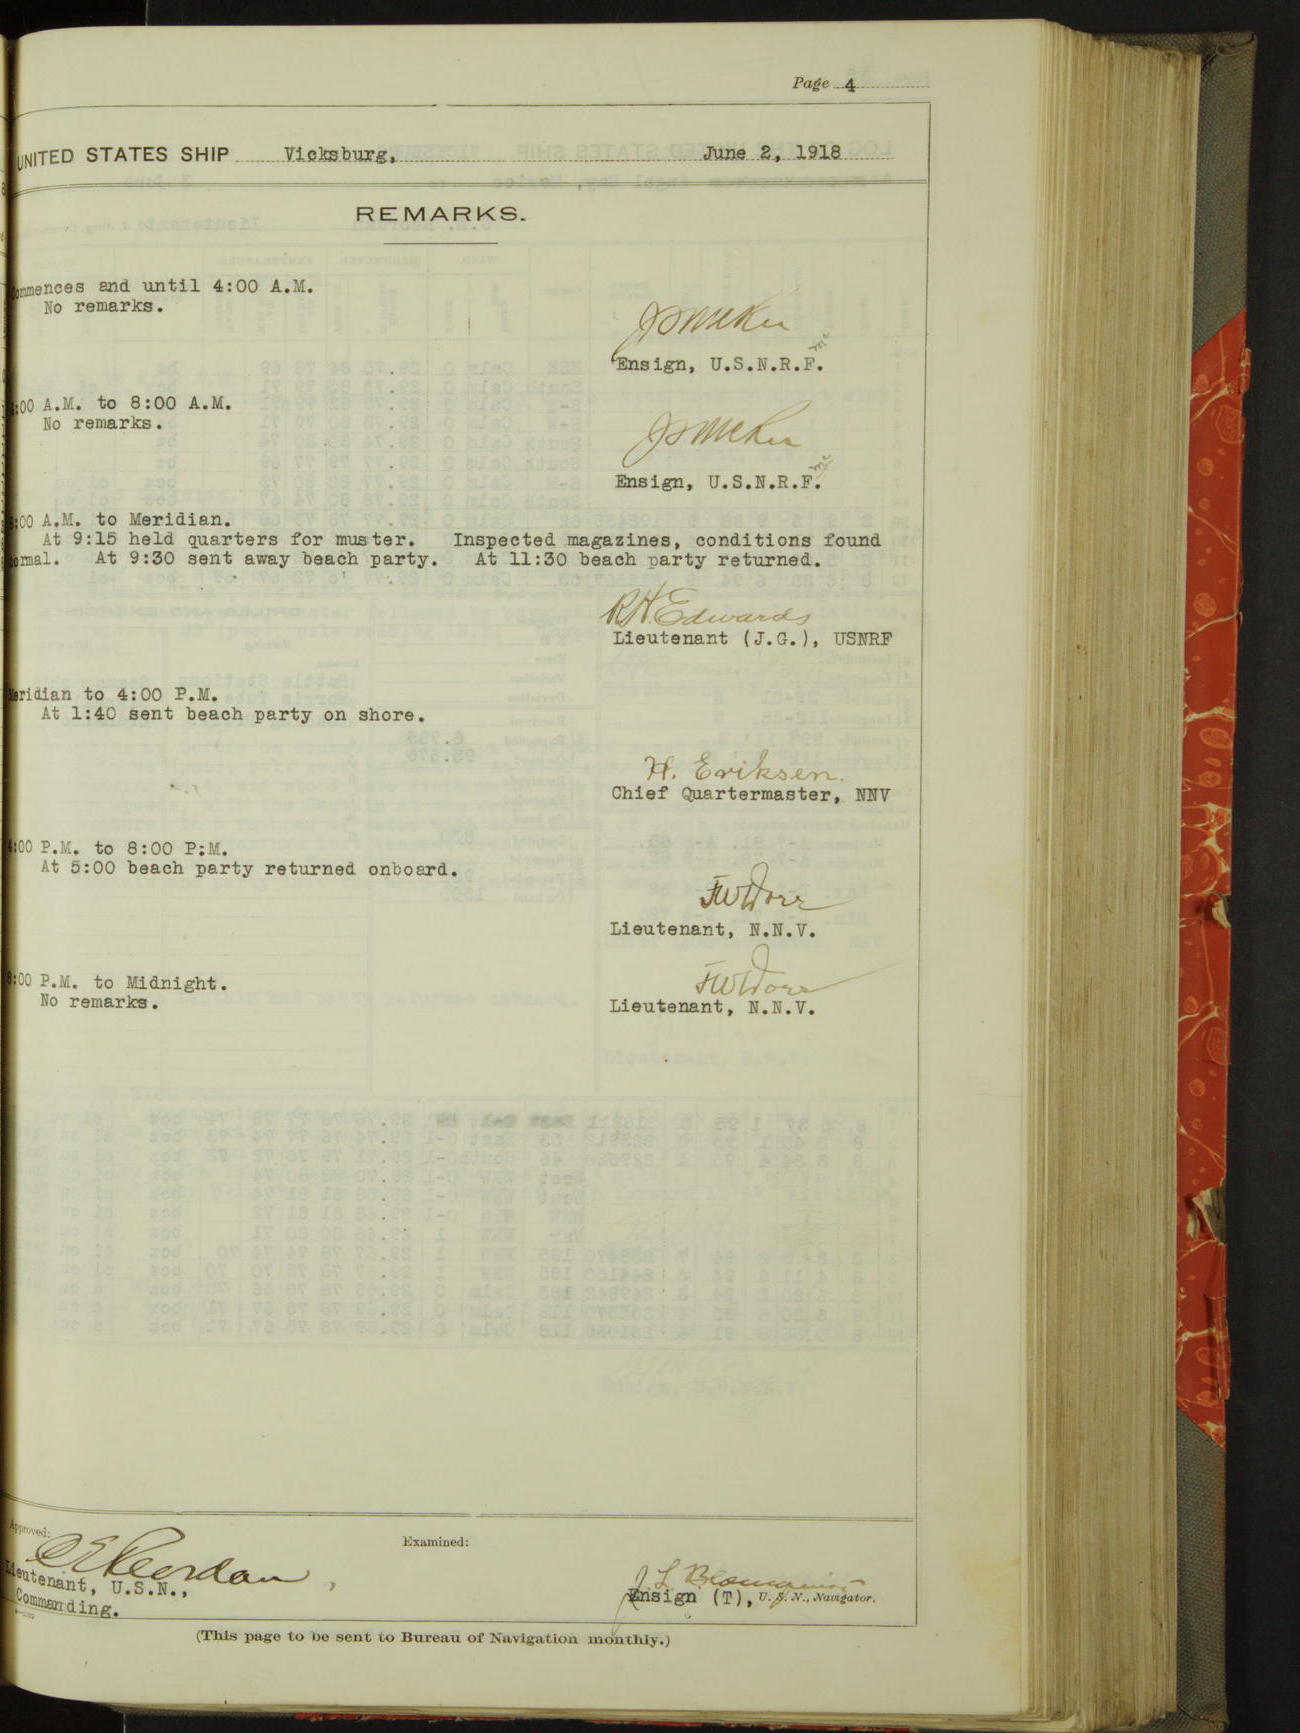 Page 4
UNITED STATES SHIP Vicksburg, June 2, 1918
REMARKS.
Commences and until 4:00 A.M.
No remarks.
Ensign, U.S.N.R.F.
4:00 A.M. to 8:00 A.M.
No remarks.
Ensign, U.S.N.R.F.
8:00 A.M. to Meridian.
At 9:15 held quarters for muster. Inspected magazines, conditions found
normal. At 9:30 sent away beach party. At 11:30 beach party returned.
R H Edwards
Lieutenant (J.G.), USNRF
Meridian to 4:00 P.M.
At 1:40 sent beach party on shore.
H. Eriksen.
Chief Quartermaster, NNV
4:00 P.M. to 8:00 P:M.
At 5:00 beach party returned onboard.
FW Dorr
Lieutenant, N.N.V.
8:00 P.M. to Midnight.
No remarks.
FW Dorr
Lieutenant, N.N.V.
Approved:
Examined:
Lieutenant, U.S.N.,
Commanding.
Ensign (T), U. S. N., Navigator.
(This page to be sent to Bureau of Navigation monthly.)